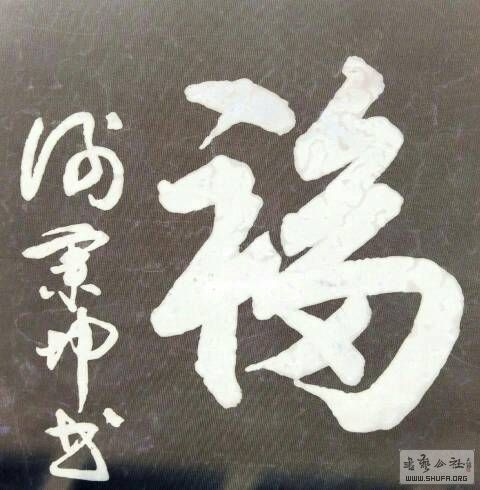 福
谢景坤书
书艺公社
WWW.SHUFA.ORG